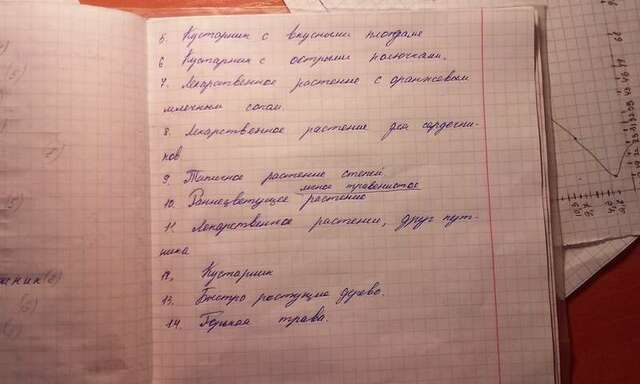 5. Кустарник с вкусными плодами
6 Кустарник с острыми колючками.
7. Лекарственное растение с оранжевым
млечным соком
8. Лекарственное растение для сердечни-
ков
9. Типичное растение степей
мелое травянистое
10. Раннецветущее растение
11. Лекарственное растение, друг пут-
ника
12. Кустарник
13. Быстро растущие дерево.
14. Горькая трава.